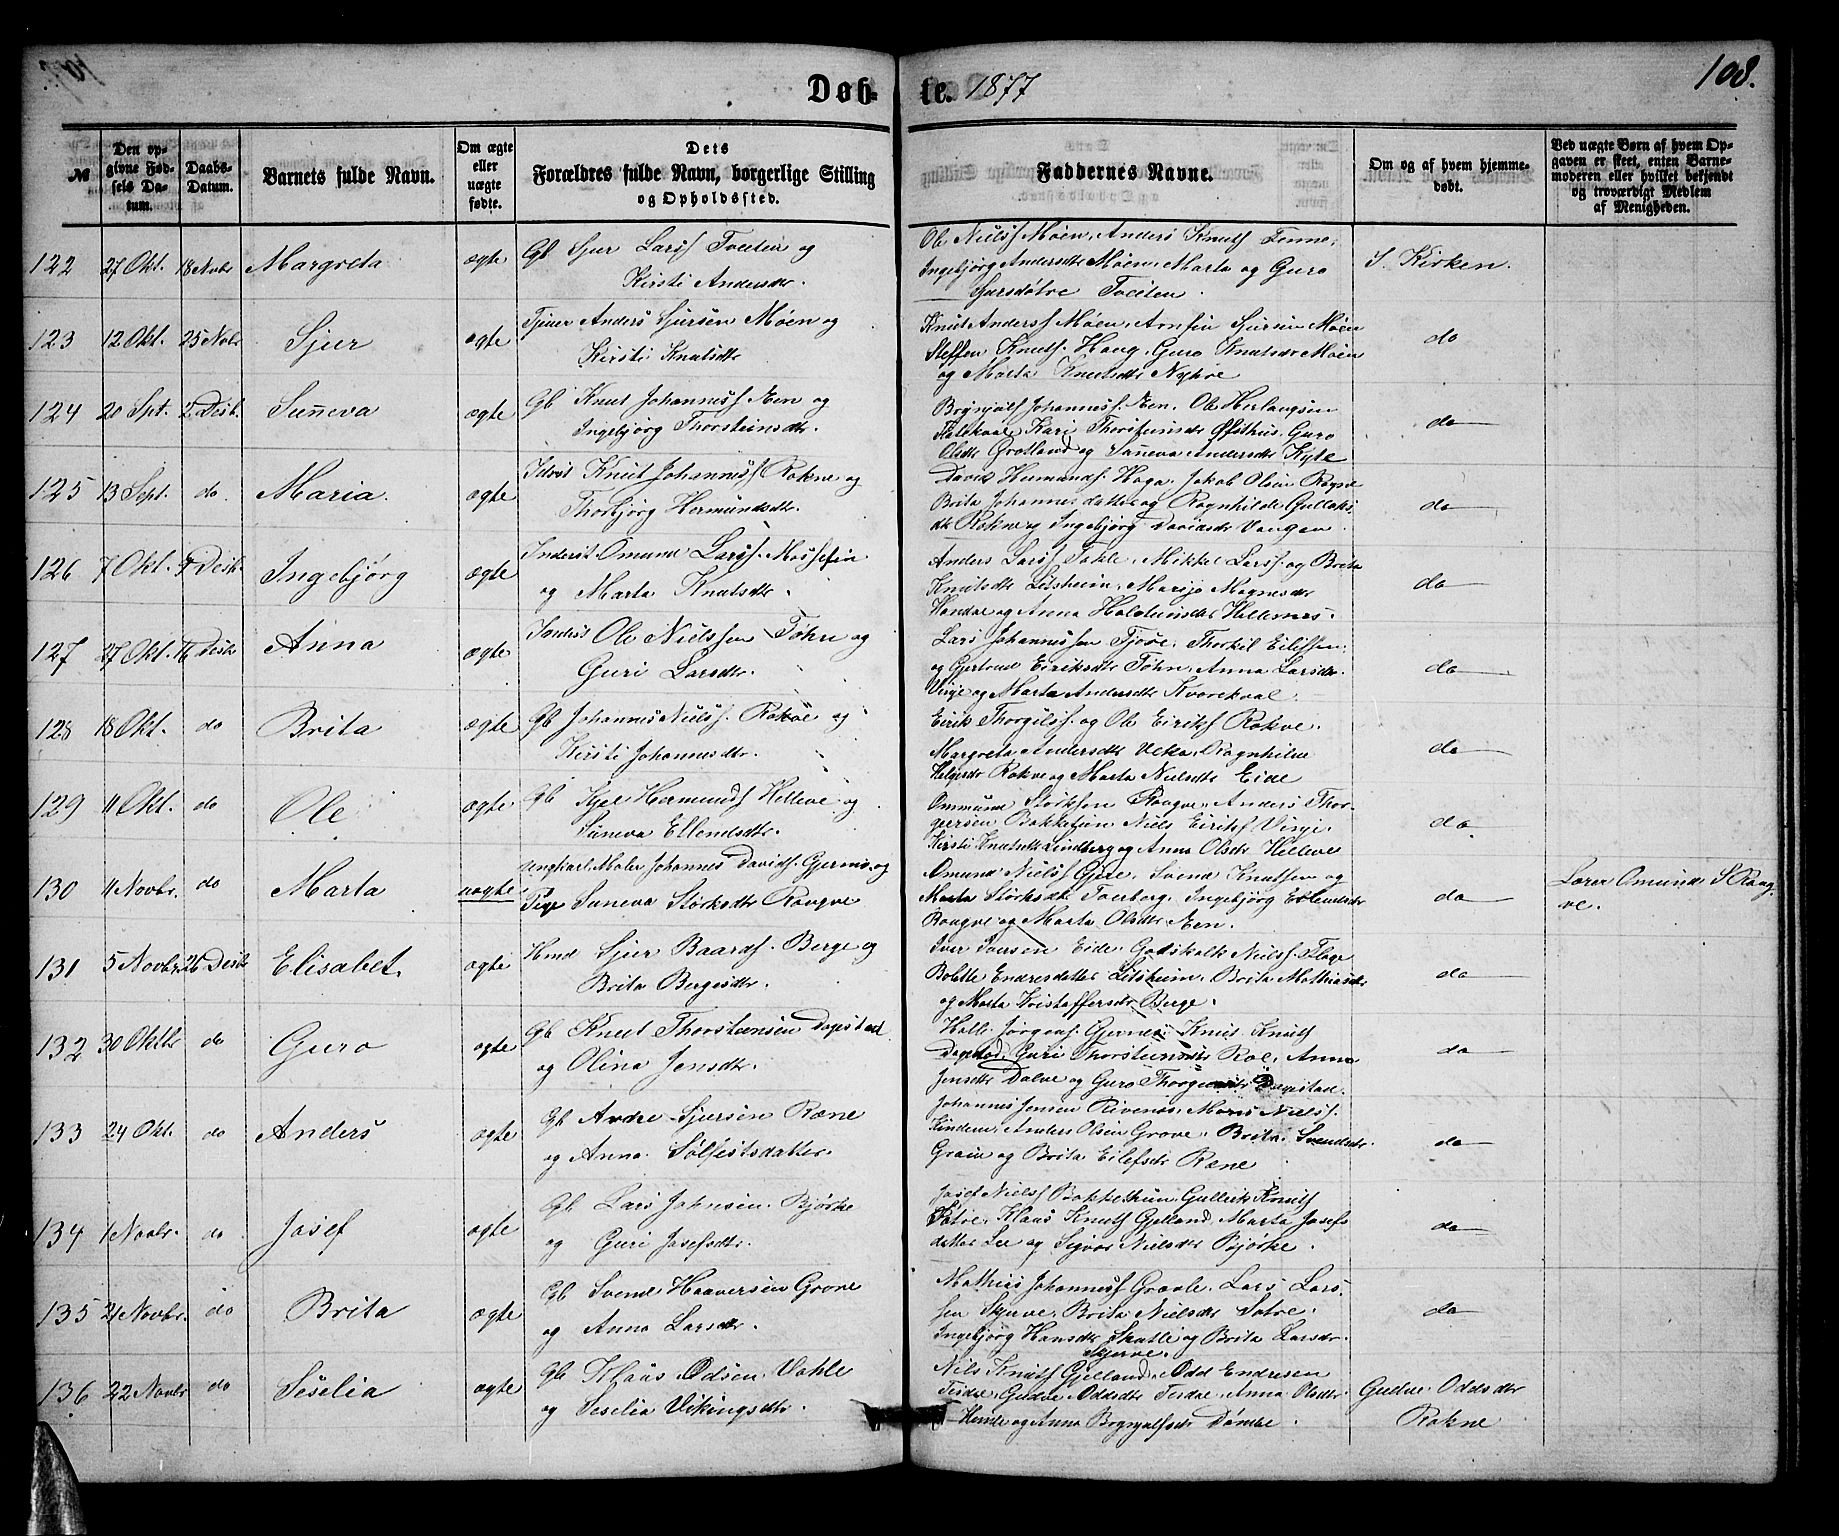 Døb-te. 1877
108.
№
Den op-
givne Fød-
sels Da-
tum.
Daabs-
Datum.
Barnets fulde Navn.
Om ægte
eller
uægte
fødte.
Dets
Forældres fulde Navn, borgerlige Stilling
og Opholdssted.
Faddernes Navne.
Om og af hvem hjemme-
døbt.
Ved uægte Børn af hvem Op-
gaven er skeet, enten Barne-
moderen eller hvilket bekjendt
og troværdigt Medlem
af Menigheden.
122 27 Okt. 18 Novbr Margreta ægte Gb Sjur Larss Tveiten og
Kirsti Andersdr.
Ole Nielss Møen, Anders Knuts Tenne,
Ingebjørg Andersdtr Møen, Marta og Guro
Sjursdøtre Tveiten.
I Kirken.
123 12 Okt. 25 Novbr Sjur ægte Anders Sjursen Møen og
Kirsti Knutsdtr
Knut Anderss Møen, Arnfin Sjursen Møen
Steffen Knuts. Haug, Guro Knutsdr Møen
og Marta Knutsdtr Nyhre
do
124 20 Spt. 2 Desb. Suneva ægte Gb Knut Johanness Æen og
Ingebjørg Thorsteinsdr.
Brynjulf Johanness Æen, Ole Herlaugsen
Kari Thorsteinsdr Øfsthus, Guro
Olsdtr Grotland og Suneva Andersdtr Kyte
do
125 13 Spt. do. Maria. ægte Knut Johanness Rokne og
Thorbjørg Hermundsdtr.
David Hermunds. Haga, Jakob Olsen
Brita Johannesdatter og Ragnhilde Gullaks-
dtr Rokne og Ingebjørg Davidsdr Vangen
do
126 7 Okt. Desbr Ingebjørg ægte Inderst Omund Larss. Mossefin
og Marta Knutsdtr.
Anders Larss Takle, Mikkel Larss. og Brita
Knutsdtr Litsheim, Marijo Magnesdtr
og Anna Holsteinsdtr Hellernes.
do
127 27 Okt. Desbr Anna ægte Inderst Ole Nielssen Tøhn og
Guri Larsdtr.
Lars Johannessen Fjøse, Thorkil Eilifsen
og Gjertrud Eiriksdtr Tøhn, Anna Larsdtr
Vinje og Marta Andersdtr Kvarekval
do
128 18 Okt. do Brita ægte Gb Johannes Nielss. Rokve og
Kirsti Johannesdtr.
Eirik Thorgilss. og Ole Eiriks Rokve.
Margreta Andersdtr Veka, Dragnhilde
Helgesdr Rokve og Marta Nielsdtr Eide
do
129 11 Okt. do Ole ægte Gb Kjel Hermunds Helleve og
Suneva Ellendsdtr.
Ommund Størksen Rongve, Anders Thor-
gersen Bakketun Niels Eiriks Vinje.
Kirsti Knutsdtr Lindberg og Anna Olsdtr Helleve
do
130 11 Novbr. do Marta uægte Ungkarl Maler Johannes Davids. Gjerme og
Pige Suneva Størksdtr Rongve
Omund Nielss Gjere, Svend Knutsen og
Marta Størksdtr Tveiberg, Ingebjørg Erlendsdtr
Rongve og Marta Olsdtr Æen.
do
Lærer Omund S Rong-
ve.
131 5 Novbr. 26 Desbr Elisabet. ægte Hmd Sjur Baards. Berge og
Brita Bergesdtr.
Iver Iversen Eide Godskalk Nielss. Flage
Bolette Endresdatter Litsheim, Brita Mathiasdtr
og Marta Kristaffersdtr Berge.
do
132 30 Oktbr do Guro ægte Gb Knut Thorsteinsen Dagestad
og Olina Jensdtr.
Halle Jørgens. Gjernes Knut Knuts
Dagestad, Guri Thorsteinsdtr Roe, Anna
Jensdtr Dalve og Guro Dagestad.
do
133 24 Okt. do Anders ægte Gb Andre Sjursen Rene
og Anna Sølfestsdatter.
Johannes Jensen Rivenes, Mons Nielss.
Kindem, Anders Olsen Grove, Brita Svendsdtr
Graue og Brita Eilefsdtr Rene
do
134 1 Novbr. do Josef ægte Gb Lars Johnsen Bjørke
og Guri Josefsdtr.
Josef Nielss Bakkethun, Gullerik Knuts
Sætre, Klaus Knuts Gjelland, Marta Josefs
datter Lee og Sigvor Nielsdtr Bjørke.
do
135 21 Novbr. do Brita ægte Gb Svend Haaversen Grove
og Anna Larsdtr.
Mathias Johanness Graale, Lars Lars-
sen Skjerve, Brita Nielsdtr Sætre.
Ingebjørg Hansdtr Skutle og Brita Larsdr.
Skjerve.
do
136 22 Novbr do Seselia ægte Gb Klaus Odsen Væhle
og Seselia Vikingsdtr.
Nils Knuts Gjelland, Odd Endresen
Tesdal, Gudve Oddsdtr Tesdal, Anna Olsdtr
Hemle og Anna Brynjulfsdtr Dømbe.
Gudve Oddsdtr
Rokne